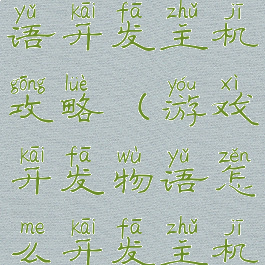 yǔ kāi fā zhǔ jī
语开发主机
gōng lüè yóu xì
攻略（游戏
kāi fā wù yǔ zěn
开发物语怎
me kāi fā zhǔ jī
么开发主机